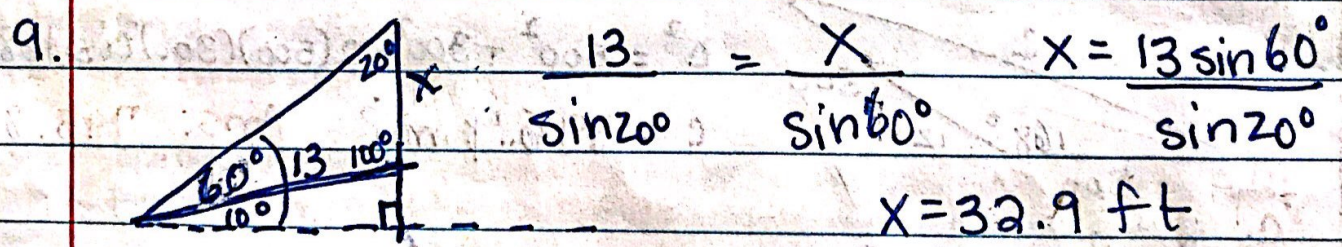 9.
20°
x
60° 13 100°
10°
13/sin20° = x/sin60°
x = 13 sin60°/sin20°
x=32.9 ft